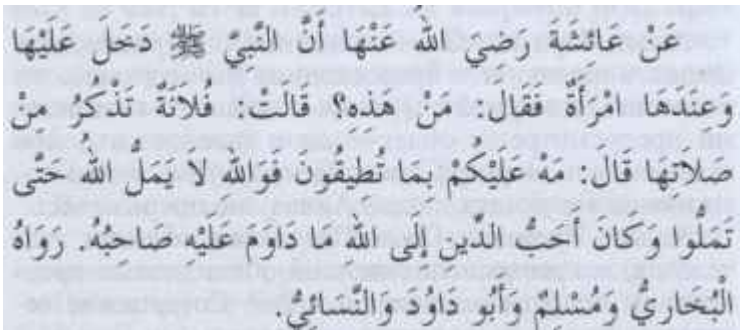 عَنْ عَائِشَةَ رَضِيَ اللهُ عَنْهَا أَنَّ النَّبِيَّ ﷺ دَخَلَ عَلَيْهَا
وَعِنْدَهَا امْرَأَةٌ فَقَالَ: مَنْ هَذِه؟ قَالَتْ: فُلاَنَةٌ تَذْكُرُ مِنْ
صَلاَتِهَا قَالَ: مَهْ عَلَيْكُمْ بِمَا تُطِيقُونَ فَوَاللهِ لاَ يَمَلُّ اللهُ حَتَّى
تَمَلُّوا وَكَانَ أَحَبُّ الدِّينِ إِلَى اللهِ مَا دَاوَمَ عَلَيْهِ صَاحِبُهُ. رَوَاهُ
الْبُخَارِيُّ وَمُسْلِمٌ وَأَبُو دَاوُدَ وَالنَّسَائِيُّ.